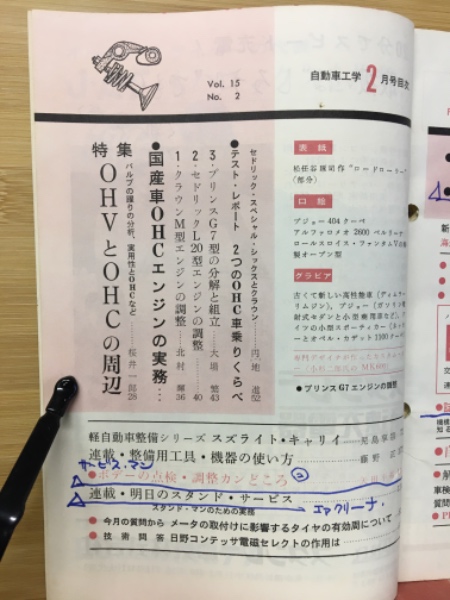 Vol. 15
No. 2
自動車工学 2月号目次
特集
OHVとOHCの周辺
バルブの躍りの分析、実用性とOHCなど
桜井一郎 28
●国産車OHCエンジンの実務…
1・クラウンM型エンジンの調整
北村 36
2・セドリックL20型エンジンの調整
40
3・プリンスG7型の分解と組立
大場 43
●テスト・レポート 2つのOHC車乗りくらべ
セドリック・スペシャル・シックスとクラウン
円地 52
表紙
松任谷 “ロードローリー”
(部分)
口絵
プジョー404クーペ
アルファロメオ 2600 ベルリーナ
ロールスロイス・ファンタムV
製オープン型
グラビア
古くて新しい高性能車(ディムラー
リムジン)、プジョー(ガソリン
射式モダンと小型乗用車など、
イツの小型スポーティカー
ーとオペル・カデット1100クーペ
●プリンスG7エンジンの調整
軽自動車整備シリーズ スズライト・キャリイ
連載・整備用工具・機器の使い方
サービスマン
●ボデーの点検・調整カンどころ ②
連載・明日のスタンド・サービス
エアクリーナ.
スタンド・マンのための実務
●今月の質問から メータの取付けに影響するタイヤの有効周について
●技術問答 日野コンテッサ電磁セレクトの作用は